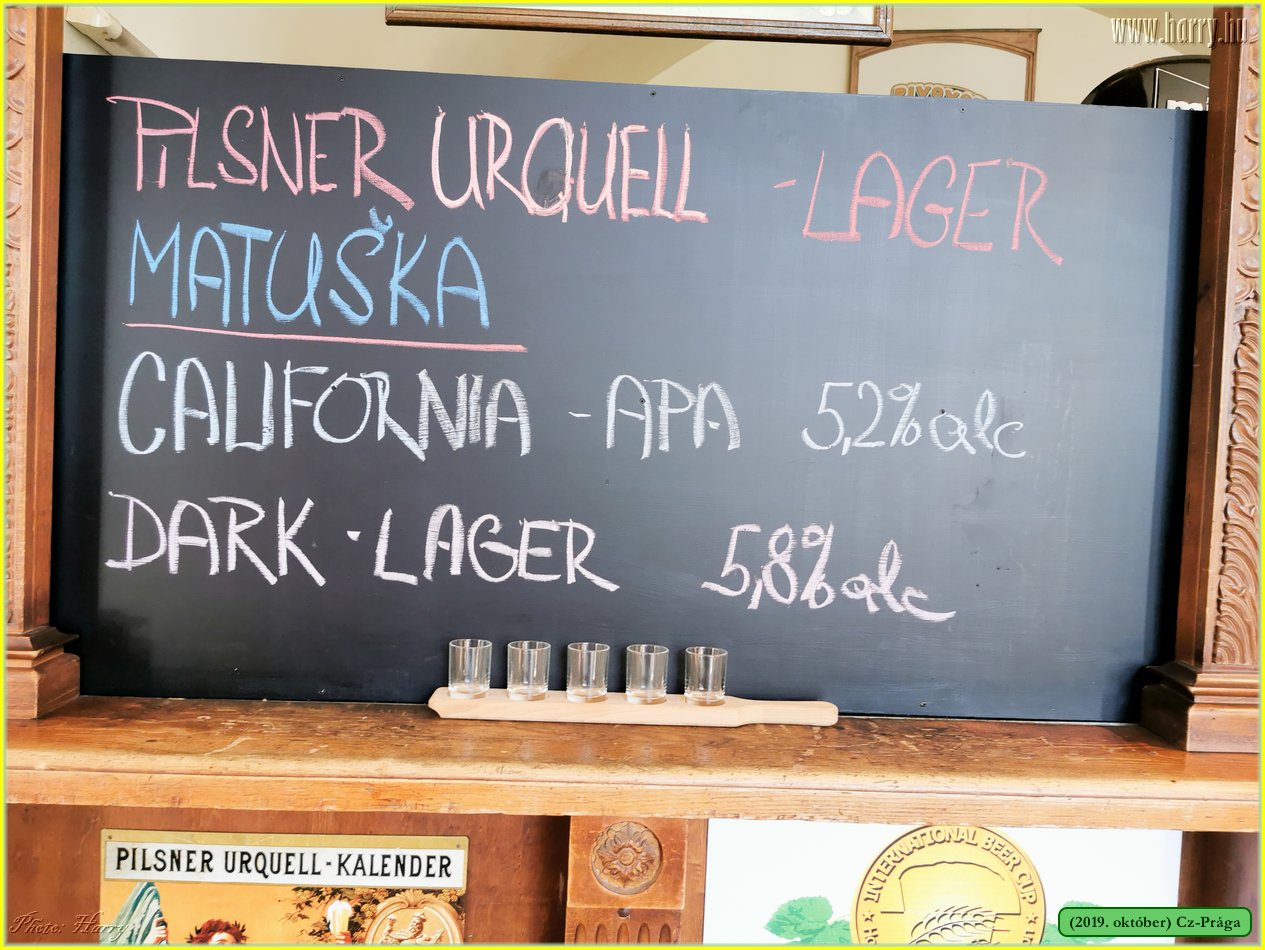 www.harry.hu
PILSNER URQUELL - LAGER
MATUŠKA
CALIFORNIA - APA 5,2% alc
DARK · LAGER 5,8% alc
PILSNER URQUELL - KALENDER
INTERNATIONAL BEER CUP
Photo: Harry
(2019. október) Cz-Prága